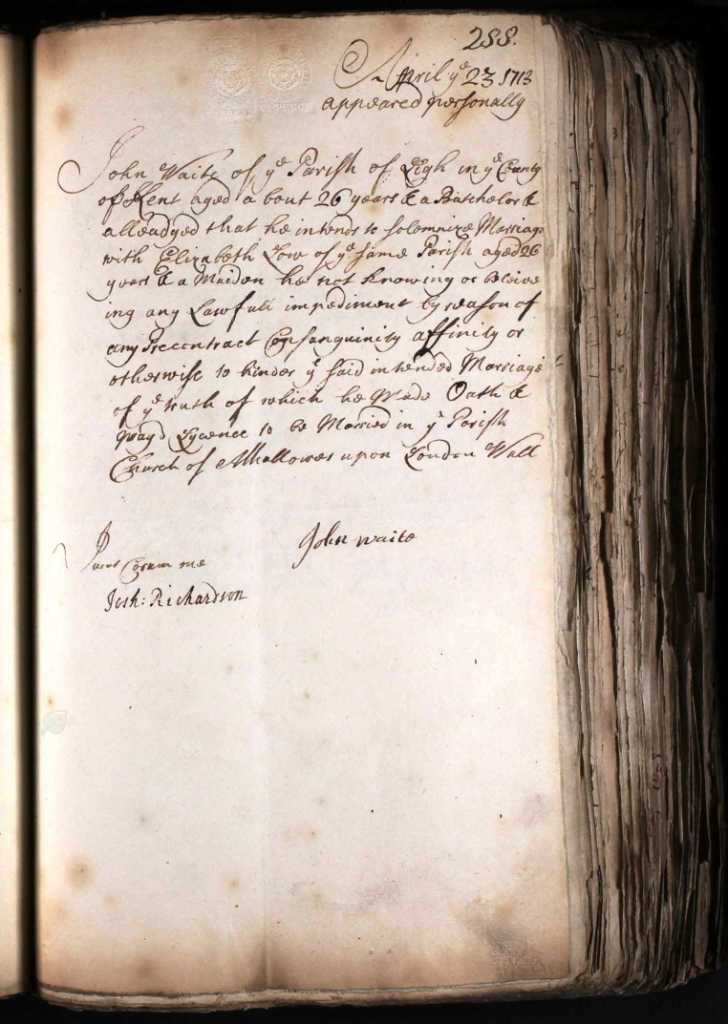 288.
April ye 23 1713
appeared personally
John Waite of ye Parish of Ligh in ye County
of Kent aged about 26 years & a Batchelor &
alleadged that he intends to solemnize Marriage
with Elizabeth Low of ye same Parish aged 26
years & a Maiden he not knowing or beleive
ing any Lawfull impediment by reason of
any Precontract Consanguinity affinity or
otherwise to hinder ye said intended Marriage
of ye truth of which he Made Oath &
pray'd Lycence to be Married in ye Parish
Church of Alhallowes upon London Wall
John Waite
Jurat Coram me
Josh: Richardson